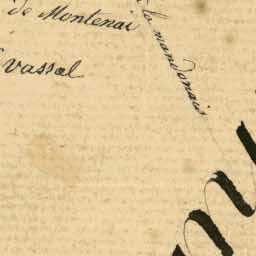 de Montenai
la mandonais
vassal